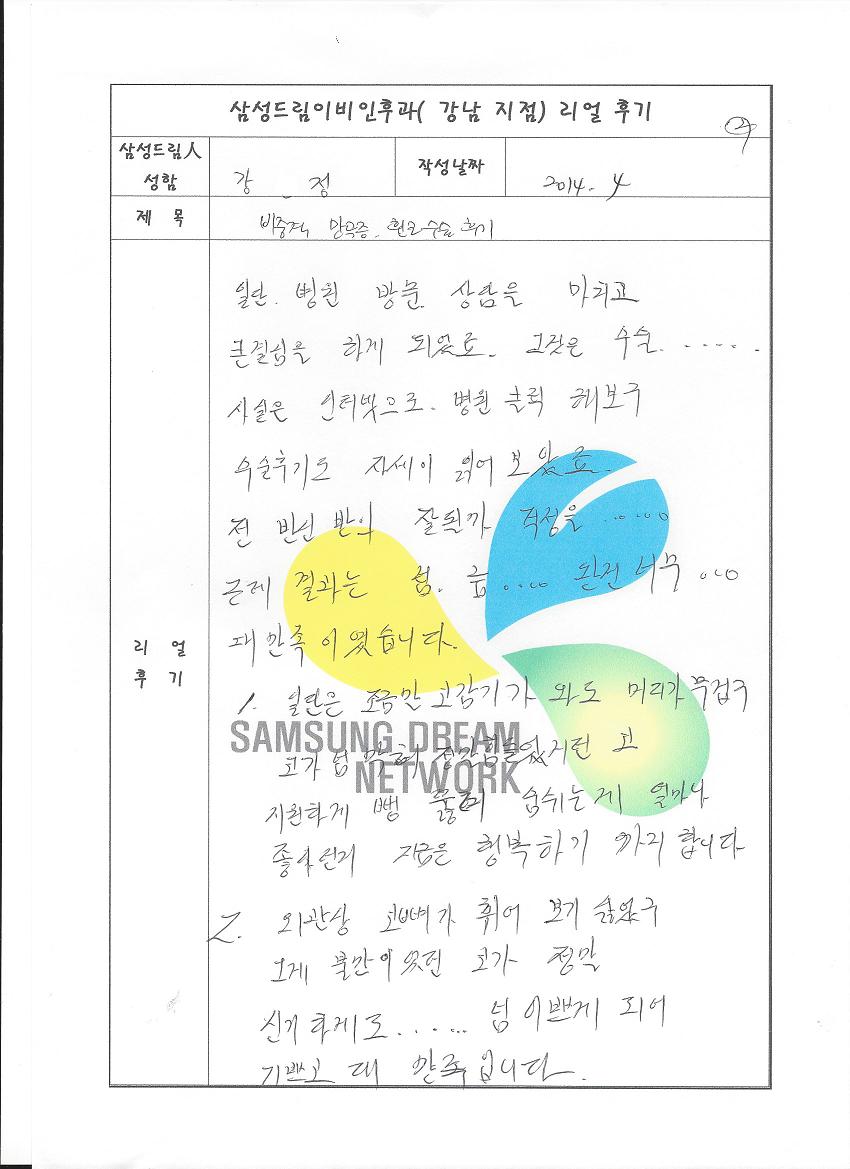 삼성드림이비인후과( 강남 지점) 리얼 후기
②
삼성드림人
성함
강 정
작성날짜
2014. 4
제 목
비중격 만곡증. 휜코수술 후기
일단. 병원 방문. 상담을 마치고
큰결심을 하게 되었죠. 그것은 수술.....
사실은 인터넷으로. 병원 클릭 해보구
수술후기도 자세이 읽어 보았죠.
전 반신 반의 잘될까 걱정을 .....
근데 결과는 넘. 늠.... 완전 너무 ...
대만족 이였습니다.
리 얼
후 기
1. 일단은 조금만 코감기가 와도 머리가 무겁구
코가 넘 막혀 정말 힘들었거던 코
SAMSUNG DREAM
NETWORK
시원하게 뻥 뚫려 숨쉬는게 얼마나
좋아던지 지금은 행복하기 까지 합니다
2. 외관상 코뼈가 휘어 보기 싫었구
그게 불만이였던 코가 정말
신기하게도...... 넘 이쁘게 되어
기쁘고 대 만족입니다.